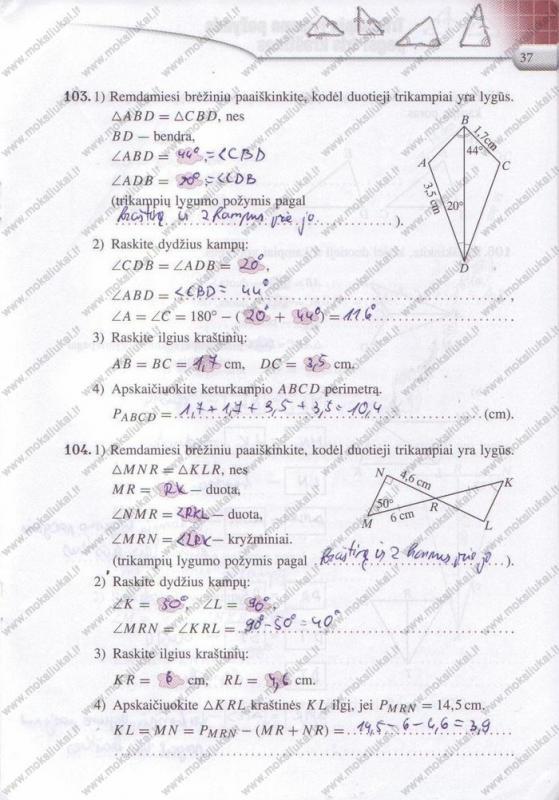 37
103. 1) Remdamiesi brėžiniu paaiškinkite, kodėl duotieji trikampiai yra lygūs.
△ABD = △CBD, nes
BD — bendra,
∠ABD = 44° = ∠CBD
∠ADB = 20° = ∠CDB
(trikampių lygumo požymis pagal
kraštinę ir 2 kampus prie jo ).
2) Raskite dydžius kampų:
∠CDB = ∠ADB = 20°,
∠ABD = ∠CBD = 44°,
∠A = ∠C = 180° − (20° + 44°) = 116°
3) Raskite ilgius kraštinių:
AB = BC = 1,7 cm, DC = 3,5 cm.
4) Apskaičiuokite keturkampio ABCD perimetrą.
P_ABCD = 1,7 + 1,7 + 3,5 + 3,5 = 10,4 (cm).
B
1,7 cm
44°
A
C
3,5 cm
20°
D
104. 1) Remdamiesi brėžiniu paaiškinkite, kodėl duotieji trikampiai yra lygūs.
△MNR = △KLR, nes
MR = RK — duota,
∠NMR = ∠RKL — duota,
∠MRN = — kryžminiai.
(trikampių lygumo požymis pagal kraštinę ir 2 kampus prie jo ).
2) Raskite dydžius kampų:
∠K = 50°, ∠L = 90°,
∠MRN = ∠KRL = 90° − 50° = 40°
3) Raskite ilgius kraštinių:
KR = 6 cm, RL = 4,6 cm.
4) Apskaičiuokite △KRL kraštinės KL ilgį, jei P_MRN = 14,5 cm.
KL = MN = P_MRN − (MR + NR) = 14,5 − 6 − 4,6 = 3,9
N
4,6 cm
K
50°
R
M
6 cm
L
www.moksliukai.lt